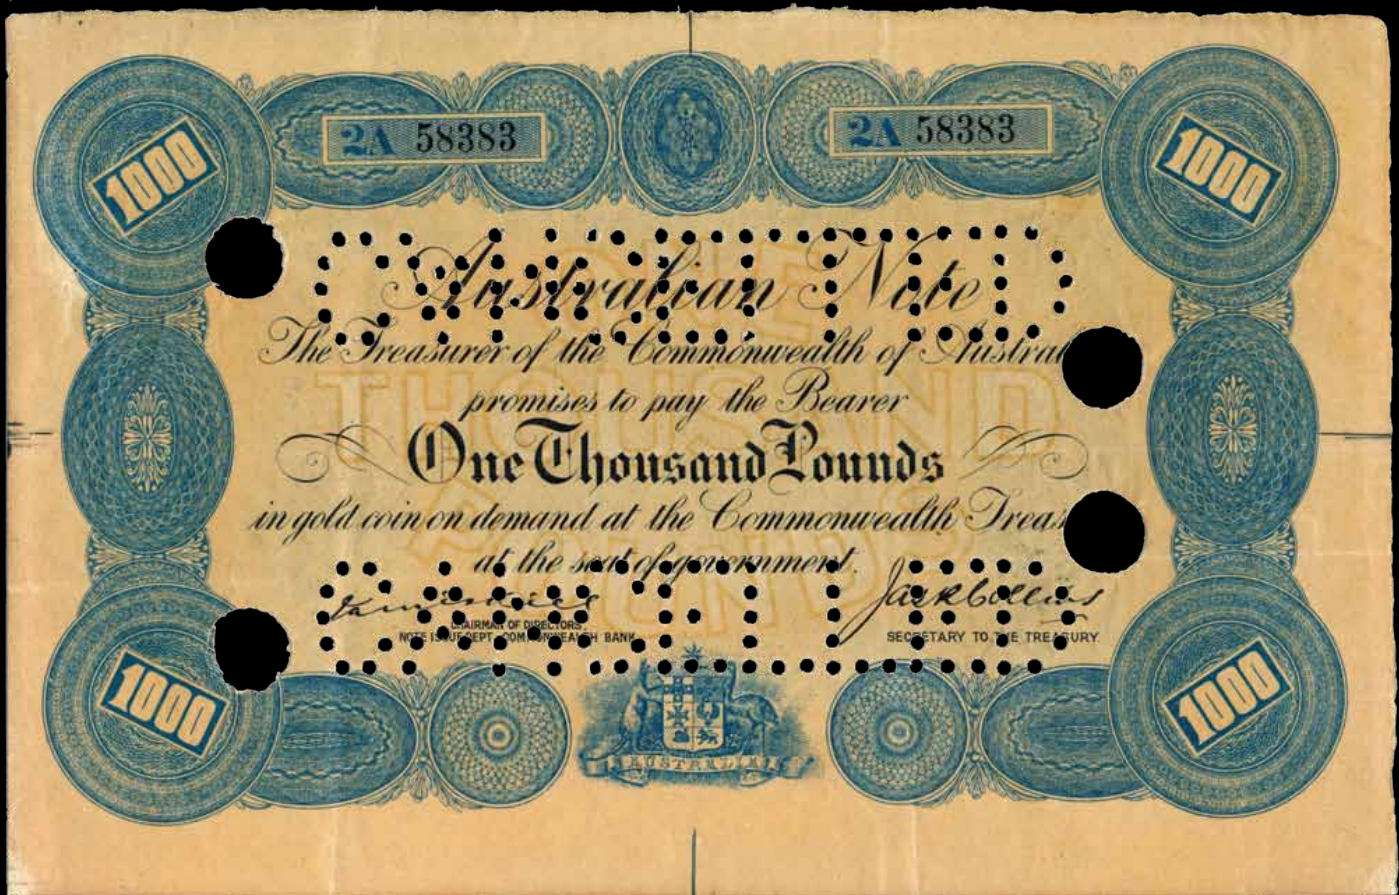 1000
2A 58383
2A 58383
1000
CANCELLED
Australian Note
The Treasurer of the Commonwealth of Austral
promises to pay the Bearer
One Thousand Pounds
in gold coin on demand at the Commonwealth Treas
at the seat of government.
ONE
THOUSAND
POUNDS
CANCELLED
Jas R Collins
CHAIRMAN OF DIRECTORS,
NOTE ISSUE DEPT. COMMONWEALTH BANK
SECRETARY TO THE TREASURY.
1000
AUSTRALIA
1000